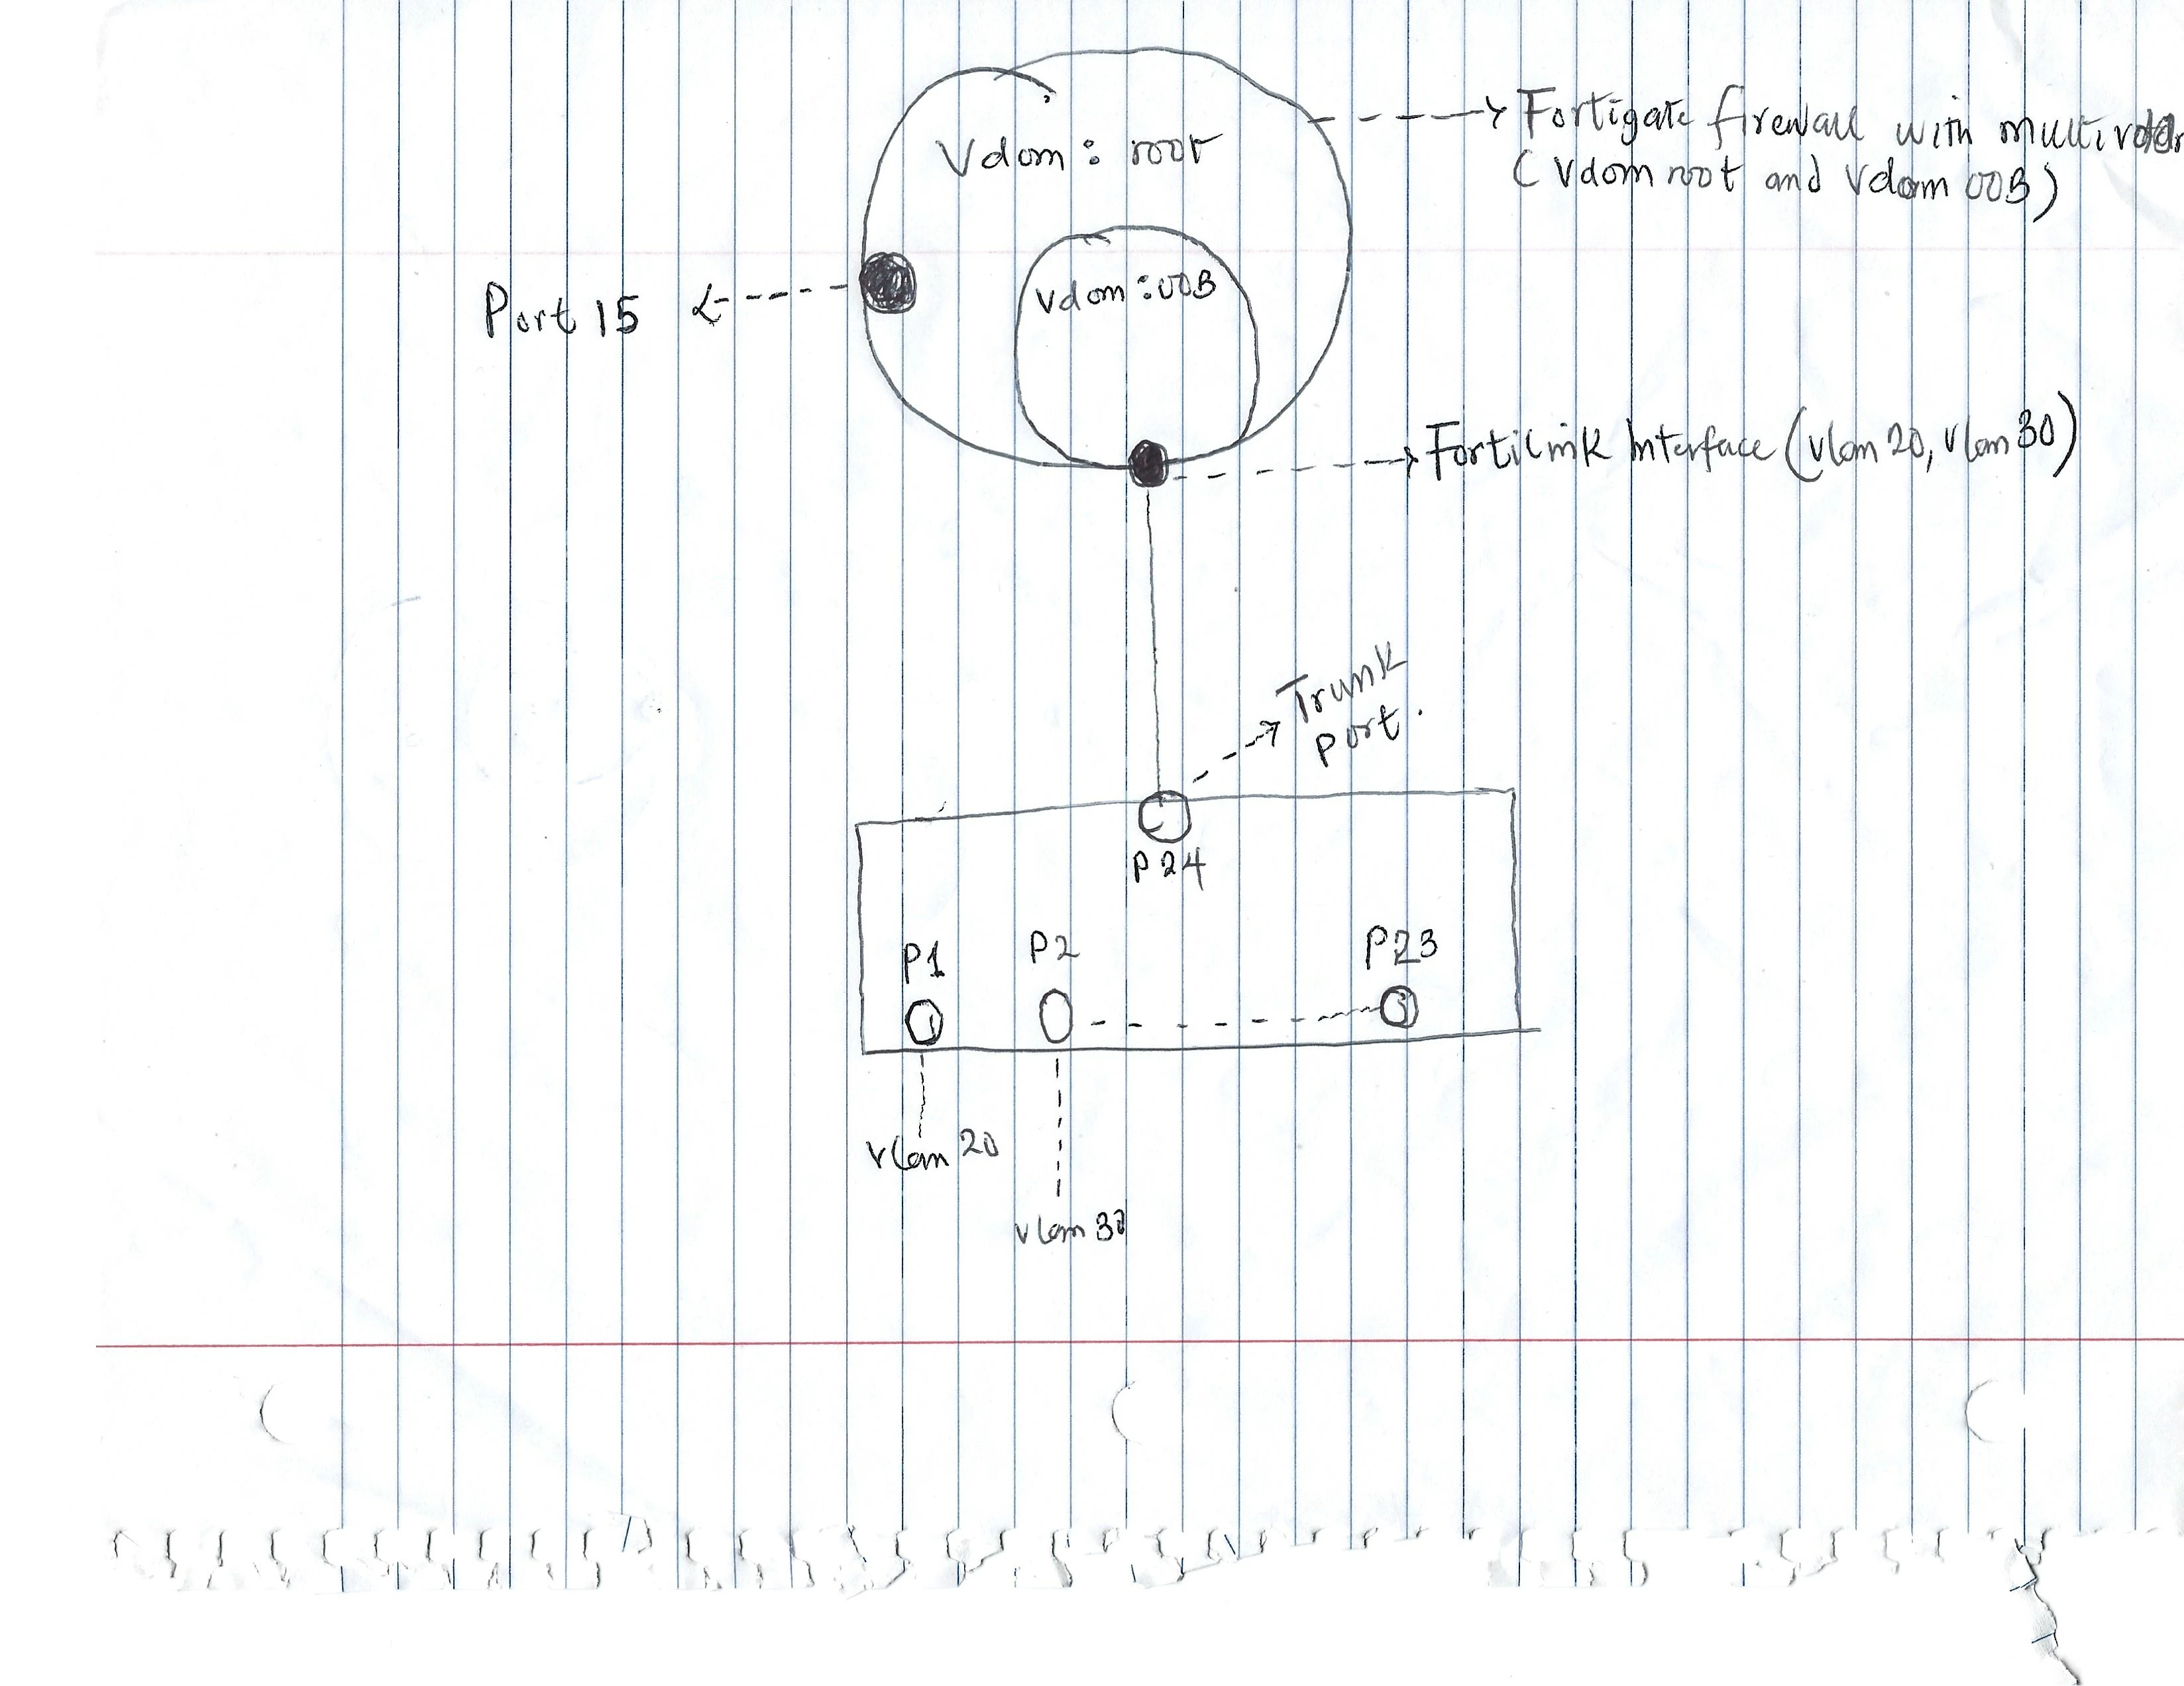 Vdom: root
Fortigate firewall with
(Vdom root and Vdom 00B)
Vdom:00B
Port 15
Fortilink Interface (vlan 20, vlan 30)
Trunk
port.
P24
P1
P2
P23
vlan 20
vlan 30